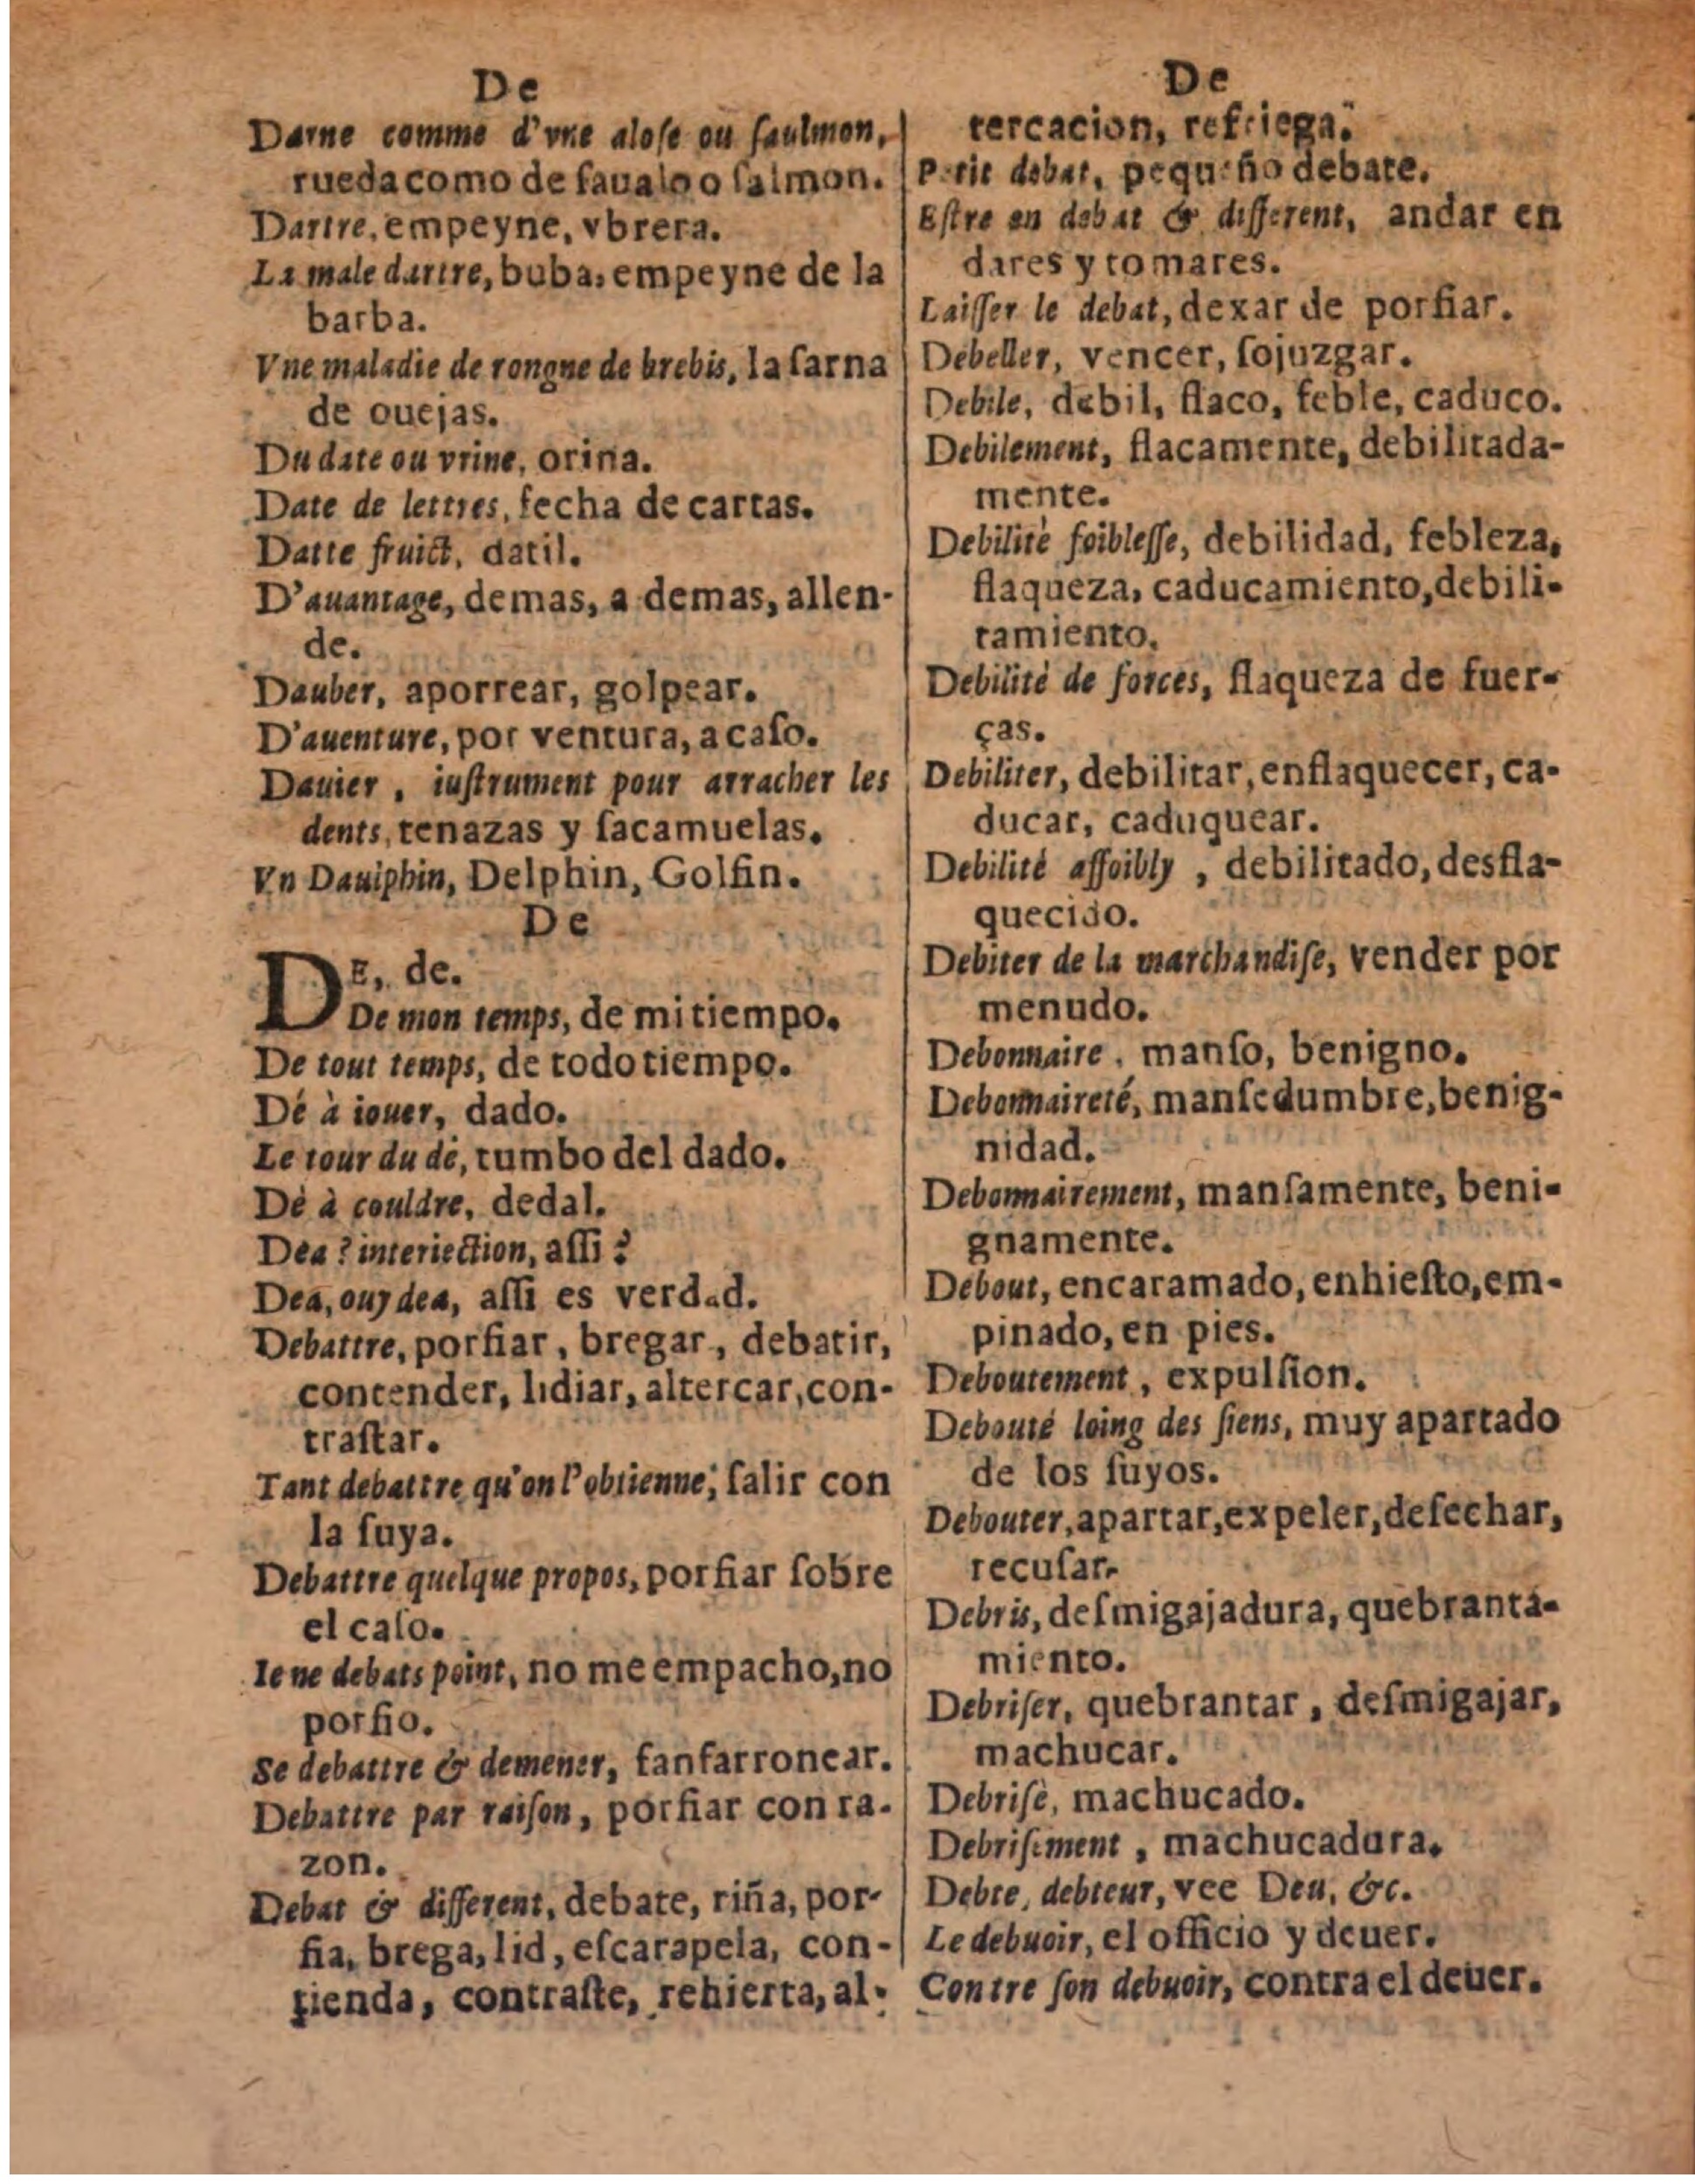 De
Darne comme d'vne aloſe ou ſaulmon,
rueda como de ſaualo o ſalmon.
Dartre, empeyne, vbrera.
La male dartre, buba, empeyne de la
barba.
Vne maladie de rongne de brebis, la ſarna
de ouejas.
Du date ou vrine, orina.
Date de lettres, fecha de cartas.
Datte fruict, datil.
D'auantage, demas, a demas, allen-
de.
Dauber, aporrear, golpear.
D'auenture, por ventura, a caſo.
Dauier, iuſtrument pour arracher les
dents, tenazas y ſacamuelas.
Vn Dauiphin, Delphin, Golfin.
De
DE, de.
De mon temps, de mi tiempo.
De tout temps, de todo tiempo.
Dé à iouer, dado.
Le tour du dé, tumbo del dado.
Dè à couldre, dedal.
Dea ? interiection, aſſi ?
Dea, ouy dea, aſſi es verdad.
Debattre, porfiar, bregar, debatir,
contender, lidiar, altercar, con-
traſtar.
Tant debattre qu'on l'obtienne, ſalir con
la ſuya.
Debattre quelque propos, porfiar ſobre
el caſo.
Ie ne debats point, no me empacho, no
porfio.
Se debattre & demener, fanfarronear.
Debattre par raiſon, porfiar con ra-
zon.
Debat & different, debate, riña, por-
fia, brega, lid, eſcarapela, con-
tienda, contraſte, rehierta, al-
De
tercacion, refriega.
Petit debat, pequeño debate.
Eſtre en debat & different, andar en
dares y tomares.
Laiſſer le debat, dexar de porfiar.
Debeller, vencer, ſojuzgar.
Debile, debil, flaco, feble, caduco.
Debilement, flacamente, debilitada-
mente.
Debilitè foibleſſe, debilidad, febleza,
flaqueza, caducamiento, debili-
tamiento.
Debilitè de forces, flaqueza de fuer-
ças.
Debiliter, debilitar, enflaquecer, ca-
ducar, caduquear.
Debilité affoibly, debilitado, desfla-
quecido.
Debiter de la marchandiſe, vender por
menudo.
Debonnaire, manſo, benigno.
Debonnaireté, manſedumbre, benig-
nidad.
Debonnairement, manſamente, beni-
gnamente.
Debout, encaramado, enhieſto, em-
pinado, en pies.
Deboutement, expulſion.
Debouté loing des ſiens, muy apartado
de los ſuyos.
Debouter, apartar, expeler, deſechar,
recuſar.
Debris, deſmigajadura, quebranta-
miento.
Debriſer, quebrantar, deſmigajar,
machucar.
Debriſè, machucado.
Debriſement, machucadura.
Debte, debteur, vee Deu, &c.
Le debuoir, el officio y deuer.
Contre ſon debuoir, contra el deuer.